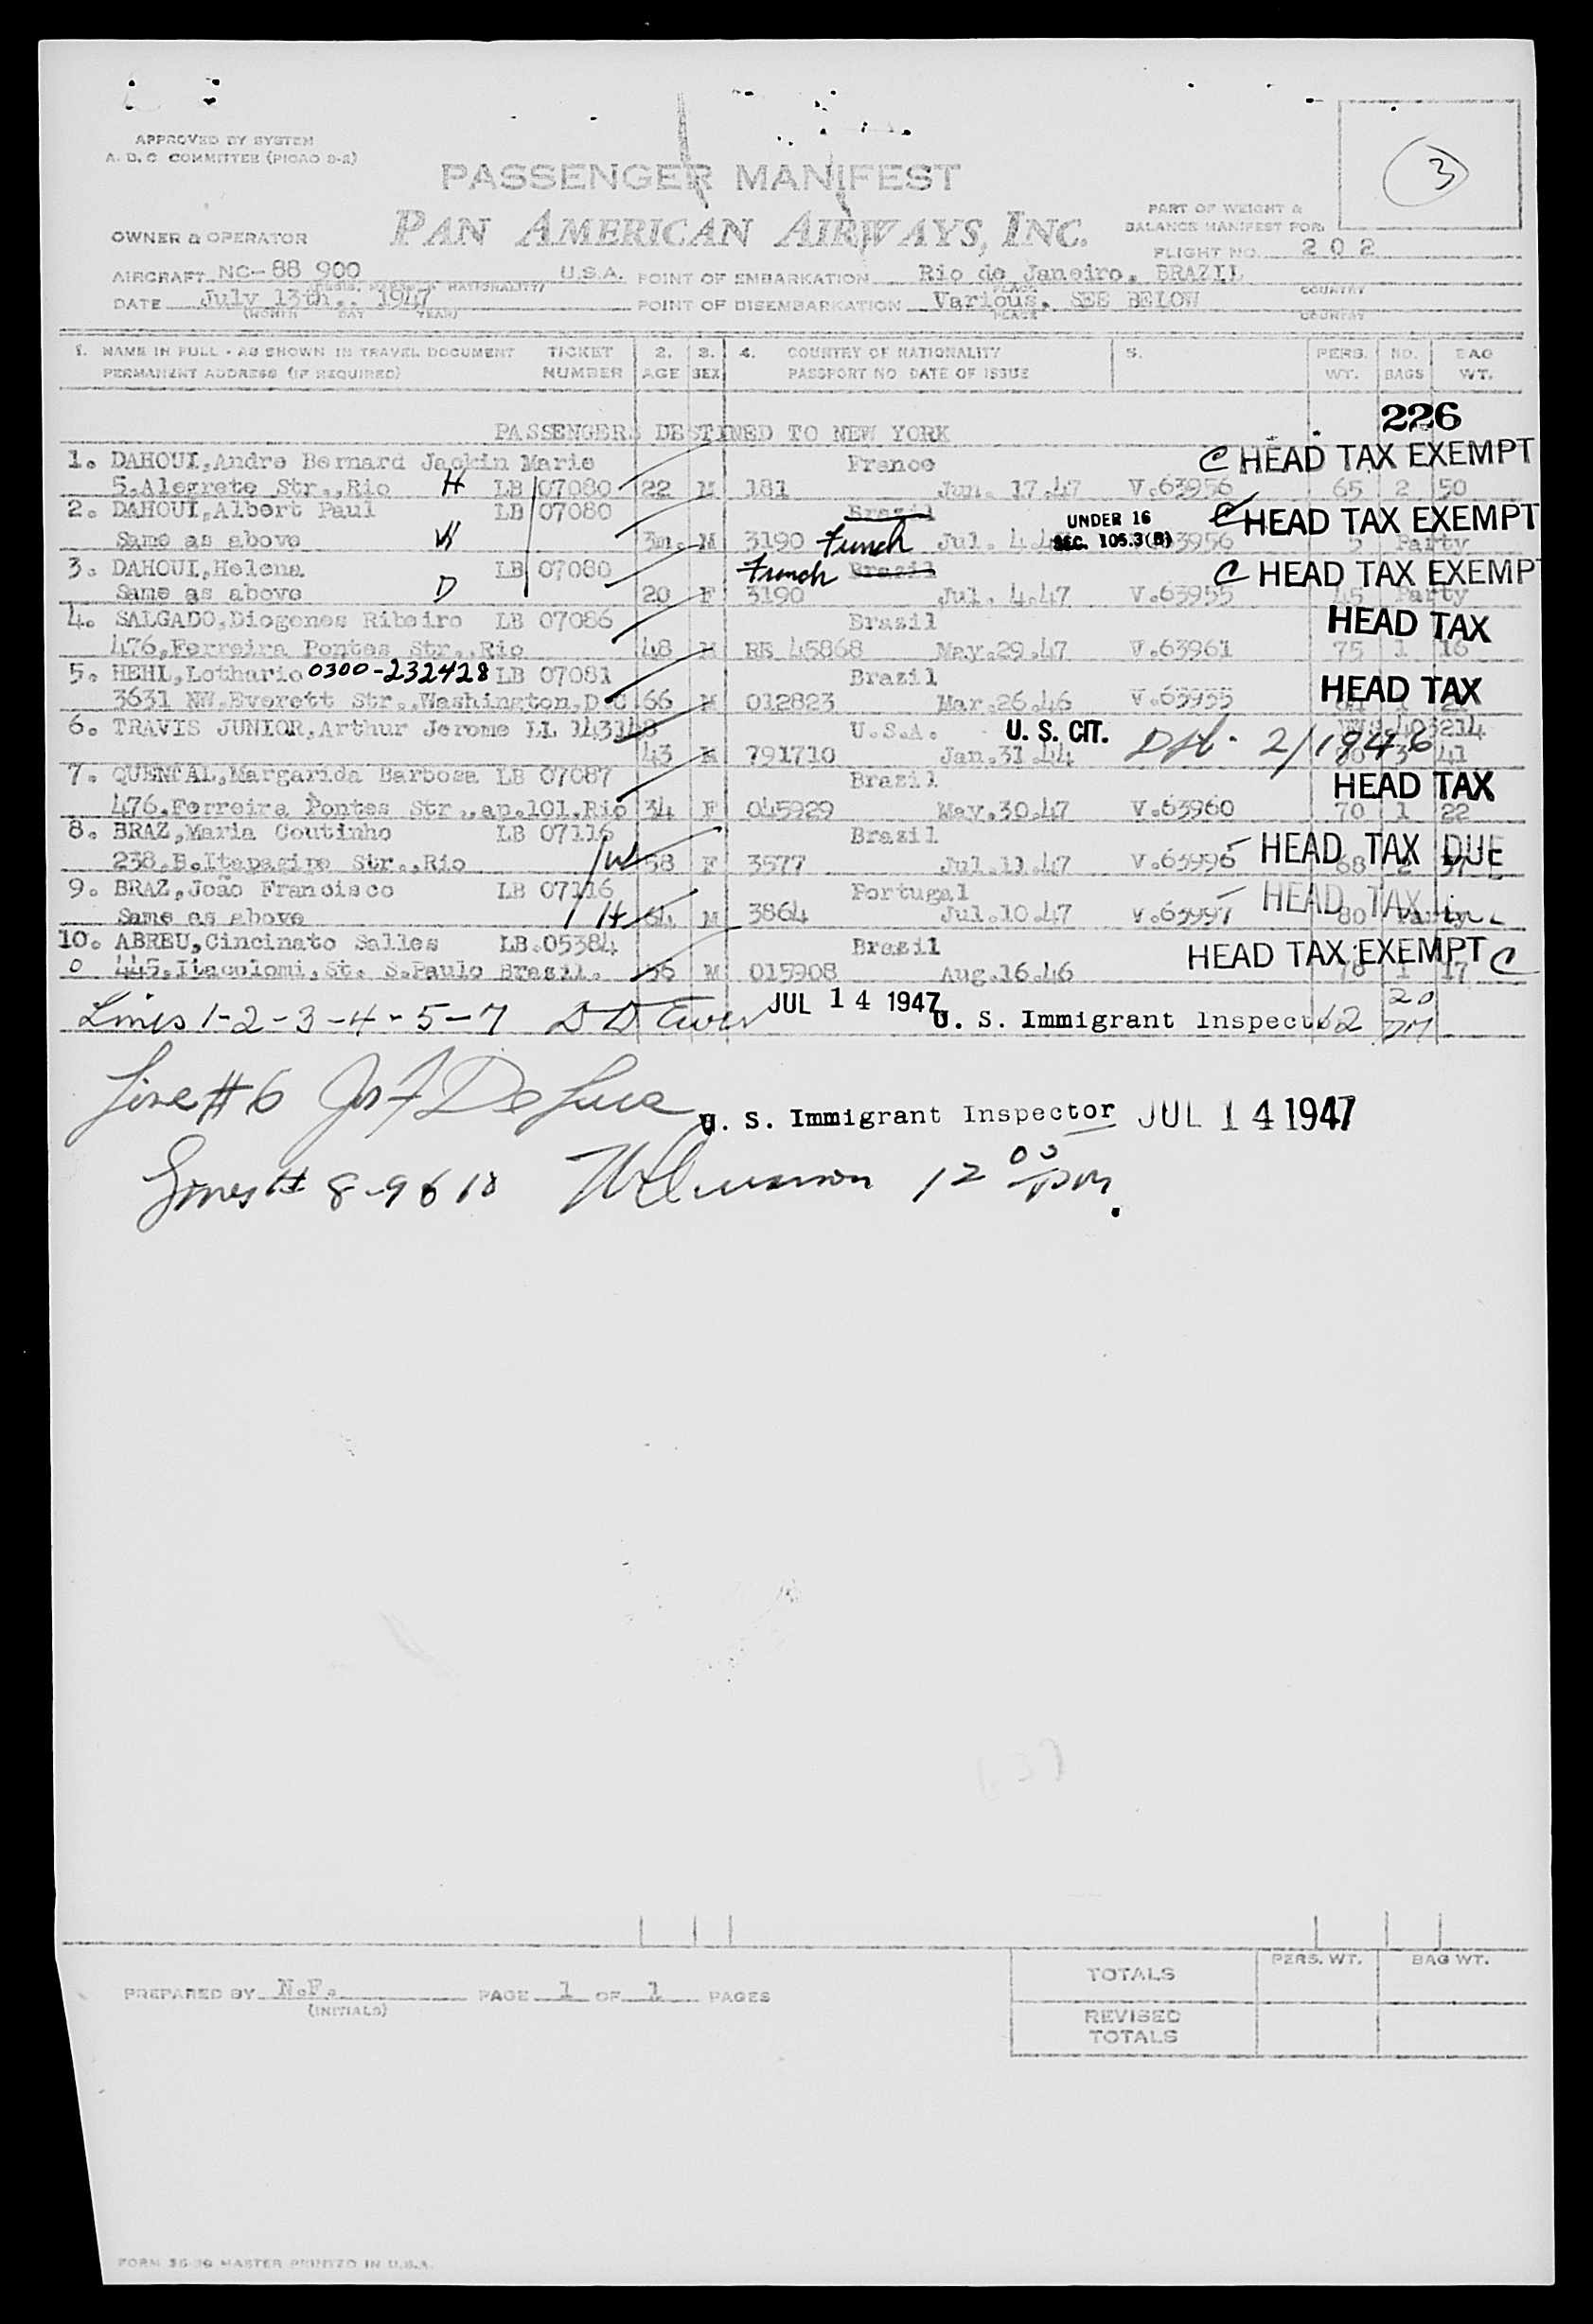 APPROVED BY SYSTEM
A. D. C COMMITTEE (PICAO 8-2)
3
PASSENGER MANIFEST
PAN AMERICAN AIRWAYS, INC.
PART OF WEIGHT &
BALANCE MANIFEST FOR:
OWNER & OPERATOR
FLIGHT NO. 202
AIRCRAFT NC-88 900 U.S.A. POINT OF EMBARKATION Rio de Janeiro, BRAZIL
PLACE COUNTRY
DATE July 13th., 1947 POINT OF DISEMBARKATION Various. SEE BELOW
(MONTH DAY YEAR) PLACE COUNTRY
1. NAME IN FULL - AS SHOWN IN TRAVEL DOCUMENT TICKET 2. 3. 4. COUNTRY OF NATIONALITY 5. PERS. NO. BAG
PERMANENT ADDRESS (IF REQUIRED) NUMBER AGE SEX PASSPORT NO DATE OF ISSUE WT. BAGS WT.
226
PASSENGERS DESTINED TO NEW YORK
1. DAHOUI,Andre Bernard Jackin Marie France C HEAD TAX EXEMPT
5,Alegrete Str.,Rio H LB 07080 22 M 181 Jun. 17.47 V.63956 65 2 50
2. DAHOUI,Albert Paul LB 07080 Brazil UNDER 16 C HEAD TAX EXEMPT
Same as above W 3m. M 3190 French Jul. 4.47 SEC. 105.3(B) 3956 5 Party
3. DAHOUI,Helena LB 07080 French Brazil C HEAD TAX EXEMP
Same as above D 20 F 3190 Jul. 4.47 V.63955 45 Party
4. SALGADO,Diogenes Ribeiro LB 07086 Brazil HEAD TAX
476,Ferreira Pontes Str.,Rio 48 M RE 45868 May.29.47 V.63961 75 1 16
5. HEHL,Lothario 0300-232428 LB 07081 Brazil HEAD TAX
3631 NW.Everett Str.,Washington,D.C 66 M 012823 Mar.26.46 V.63935
6. TRAVIS JUNIOR,Arthur Jerome LL 143148 U.S.A. U. S. CIT.
43 M 791710 Jan.31.44 2/1946 3 41
7. QUENTAL,Margarida Barbosa LB 07087 Brazil HEAD TAX
476,Ferreira Pontes Str.,ap.101,Rio 34 F 045929 May.30.47 V.63960 70 1 22
8. BRAZ,Maria Coutinho LB 07116 Brazil HEAD TAX DUE
238,B.Itapagipe Str.,Rio W 58 F 3577 Jul.11.47 V.63996 68 2 37
9. BRAZ,João Francisco LB 07116 Portugal HEAD TAX
Same as above H 64 M 3864 Jul.10.47 V.63997 80 Party
10. ABREU,Cincinato Salles LB.05384 Brazil HEAD TAX EXEMPT C
0 445,Itacolomi,St. S.Paulo Brazil. 56 M 015908 Aug.16.46 78 1 17
Lines 1-2-3-4-5-7 JUL 14 1947 U. S. Immigrant Inspector
Line # 6 Jos F De Luca U. S. Immigrant Inspector JUL 14 1947
Lines # 8-9 & 10 12 00 pm.
TOTALS PERS. WT. BAG WT.
PREPARED BY N.F. PAGE 1 OF 1 PAGES
(INITIALS)
REVISED
TOTALS
FORM 36-39 MASTER PRINTED IN U.S.A.